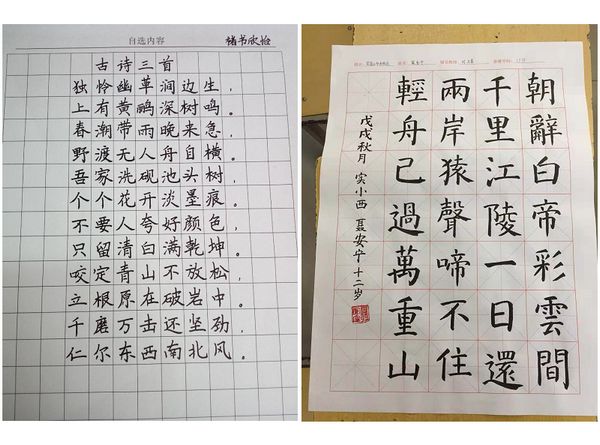 自选内容
古诗三首
独怜幽草涧边生，
上有黄鹂深树鸣。
春潮带雨晚来急，
野渡无人舟自横。
吾家洗砚池头树，
个个花开淡墨痕。
不要人夸好颜色，
只留清白满乾坤。
咬定青山不放松，
立根原在破岩中。
千磨万击还坚劲，
仁尔东西南北风。
朝辭白帝彩雲間
千里江陵一日還
兩岸猿聲啼不住
輕舟已過萬重山
戊戌秋月 实小西 聂安宁 十二岁